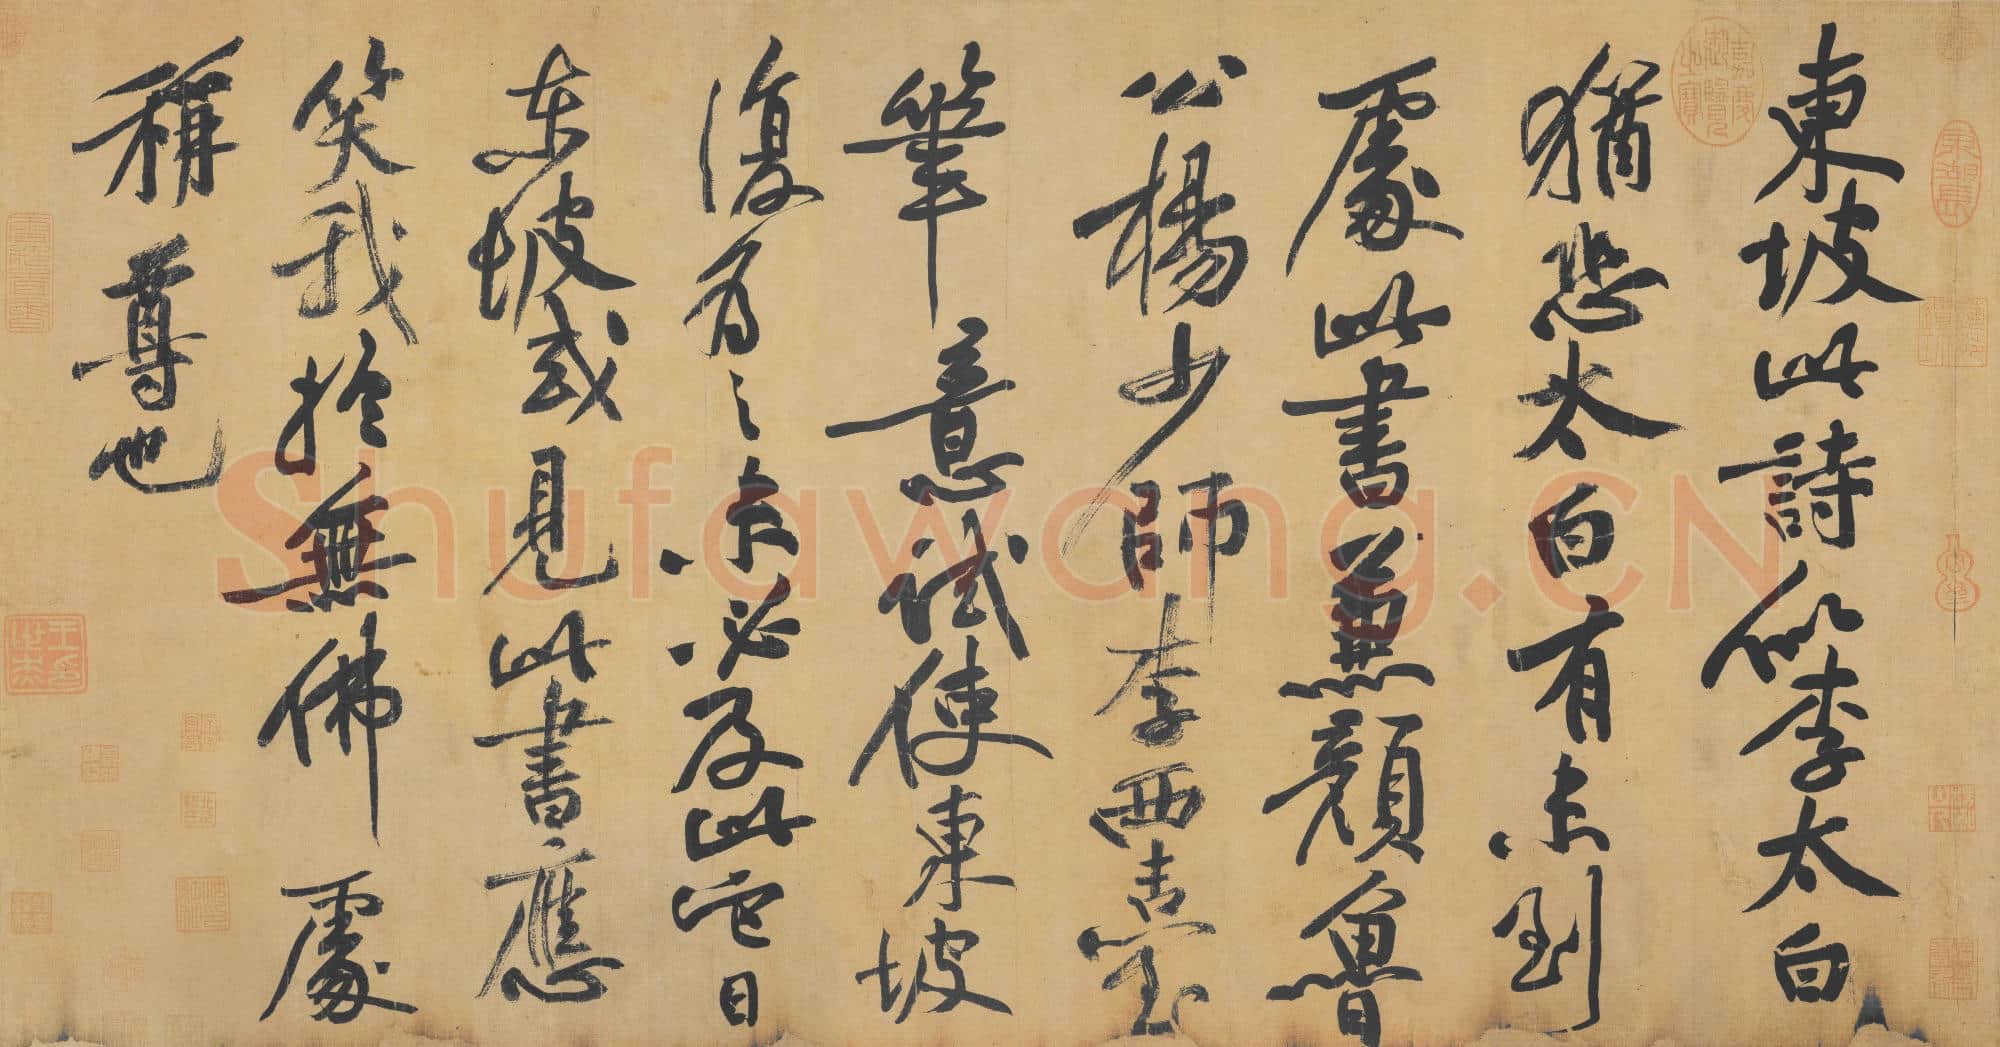 東坡此詩似李太白
猶恐太白有未到
處此書兼顔魯
公楊少師李西臺
筆意試使東坡
復爲之未必及此它日
東坡或見此書應
笑我於無佛處
稱尊也
嘉慶御覽之寶
Shufawang.CN